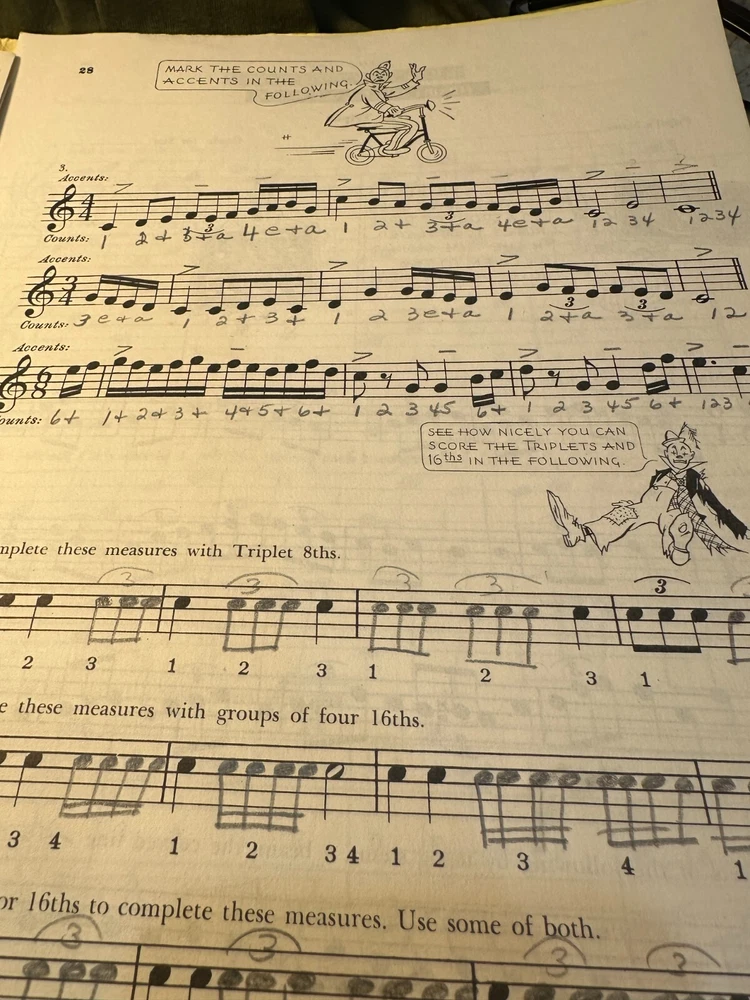 28
MARK THE COUNTS AND
ACCENTS IN THE
FOLLOWING.
3.
Accents:
4
4
3
3
Counts: 1 2 + 3 + a 4 e + a 1 2 + 3 + a 4 e + a 1 2 3 4 1 2 3 4
Accents:
3
4
3 3
Counts: 3 e + a 1 2 + 3 + 1 2 3 e + a 1 2 + a 3 + a 1 2
Accents:
6
8
ounts: 6 + 1 + 2 + 3 + 4 + 5 + 6 + 1 2 3 4 5 6 + 1 2 3 4 5 6 + 1 2 3
SEE HOW NICELY YOU CAN
SCORE THE TRIPLETS AND
16ths IN THE FOLLOWING.
mplete these measures with Triplet 8ths.
3 3 3 3 3
2 3 1 2 3 1 2 3 1
e these measures with groups of four 16ths.
3 4 1 2 3 4 1 2 3 4 1
or 16ths to complete these measures. Use some of both.
3 3 3 3